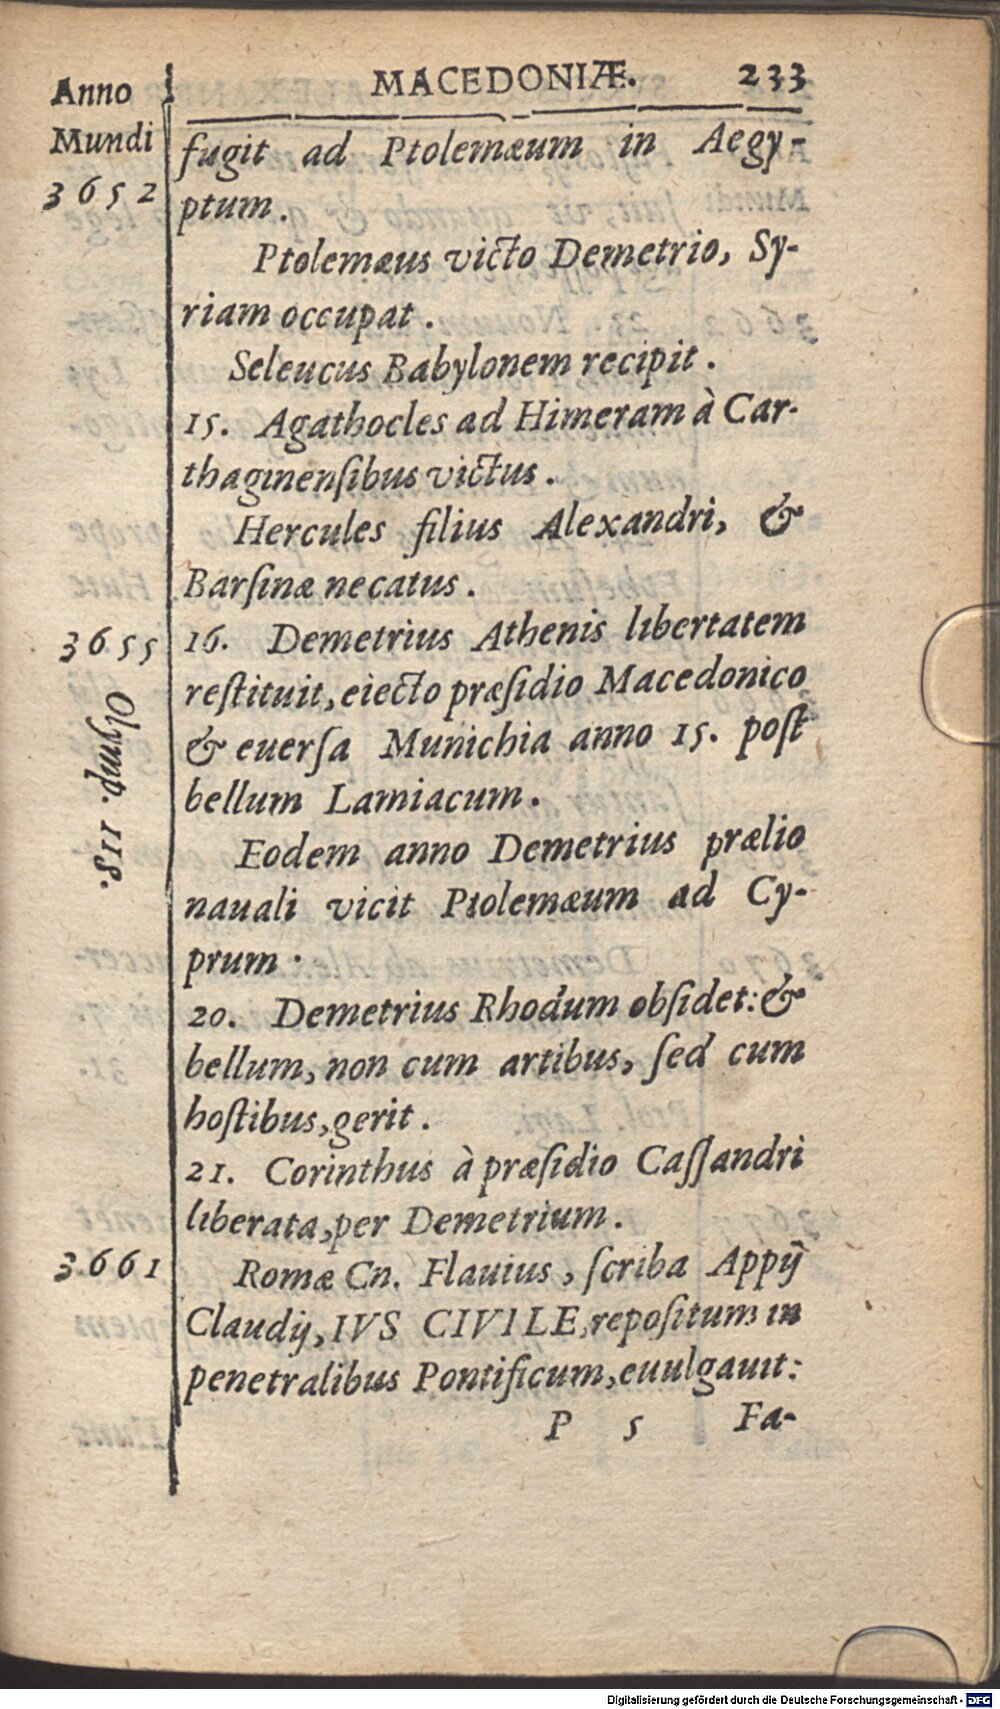 MACEDONIÆ. 233
Anno
Mundi
3652
fugit ad Ptolemæum in Aegy-
ptum.
Ptolemæus victo Demetrio, Sy-
riam occupat.
Seleucus Babylonem recipit.
15. Agathocles ad Himeram à Car-
thaginenſibus victus.
Hercules filius Alexandri, &
Barſinæ necatus.
3655
16. Demetrius Athenis libertatem
reſtituit, eiecto præſidio Macedonico
& euerſa Munichia anno 15. poſt
bellum Lamiacum.
Olymp. 118.
Eodem anno Demetrius prælio
nauali vicit Ptolemæum ad Cy-
prum.
20. Demetrius Rhodum obſidet: &
bellum, non cum artibus, ſed cum
hoſtibus, gerit.
21. Corinthus à præſidio Caſſandri
liberata, per Demetrium.
3661
Romæ Cn. Flauius, ſcriba Appij
Claudij, IVS CIVILE, repoſitum in
penetralibus Pontificum, euulgauit:
P 5 Fa-
Digitalisierung gefördert durch die Deutsche Forschungsgemeinschaft - DFG